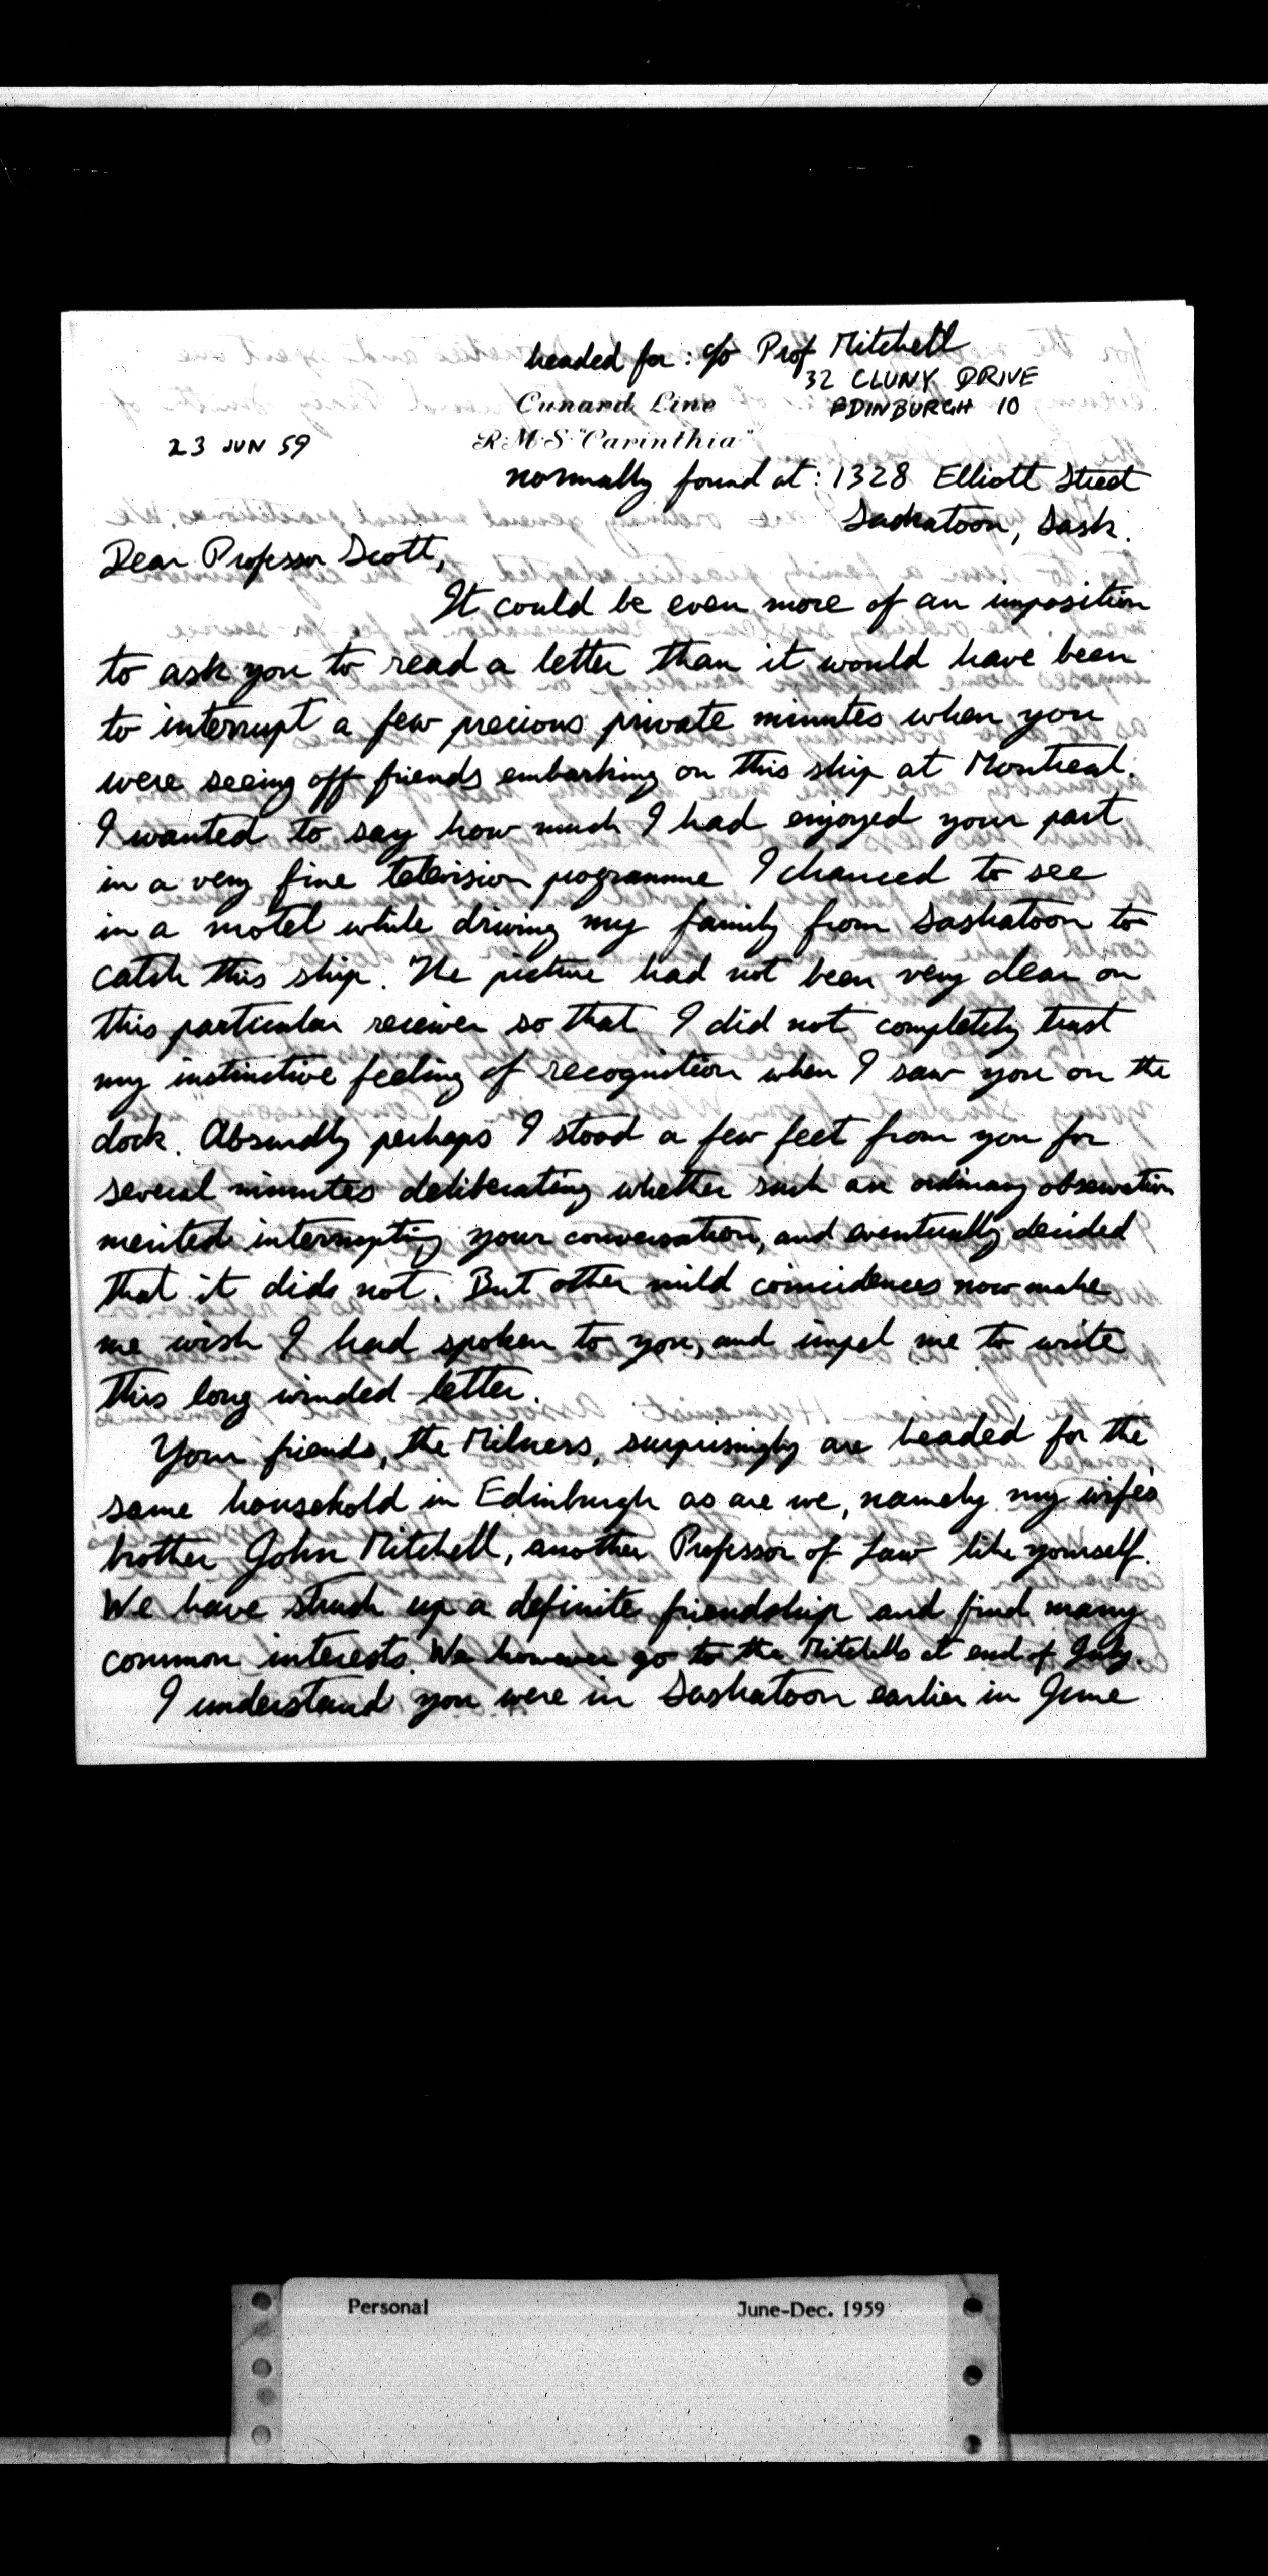 headed for: c/o Prof Mitchell
32 CLUNY DRIVE
EDINBURGH 10
Cunard Line
R.M.S. "Carinthia"
23 JUN 59
normally found at: 1328 Elliott Street
Saskatoon, Sask.
Dear Professor Scott,
It could be even more of an imposition
to ask you to read a letter than it would have been
to interrupt a few precious private minutes when you
were seeing off friends embarking on this ship at Montreal.
I wanted to say how much I had enjoyed your part
in a very fine television programme I chanced to see
in a motel while driving my family from Saskatoon to
catch this ship. The picture had not been very clear on
this particular receiver so that I did not completely trust
my instinctive feeling of recognition when I saw you on the
dock. Absurdly perhaps I stood a few feet from you for
several minutes deliberating whether such an ordinary observation
merited interrupting your conversation, and eventually decided
that it did not. But other mild coincidences now make
me wish I had spoken to you, and impel me to write
this long winded letter.
Your friends, the Milners, surprisingly are headed for the
same household in Edinburgh as are we, namely my wife's
brother John Mitchell, another Professor of Law like yourself.
We have struck up a definite friendship and find many
common interests. We however go to the Mitchells at end of July.
I understand you were in Saskatoon earlier in June
Personal June-Dec. 1959